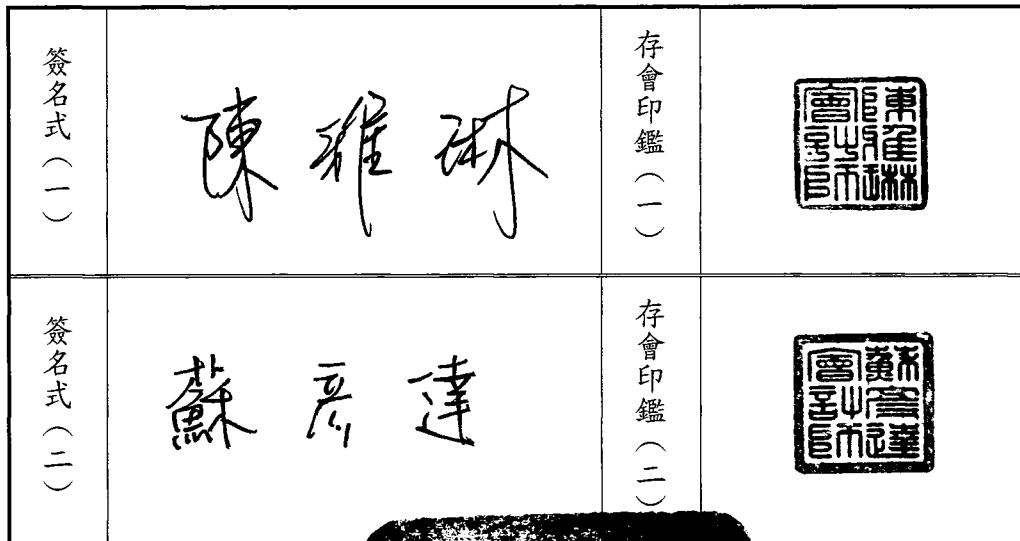 簽名式（一）
陳雅琳
存會印鑑（一）
陳雅琳會計師印
簽名式（二）
蘇彥達
存會印鑑（二）
蘇彥達會計師印